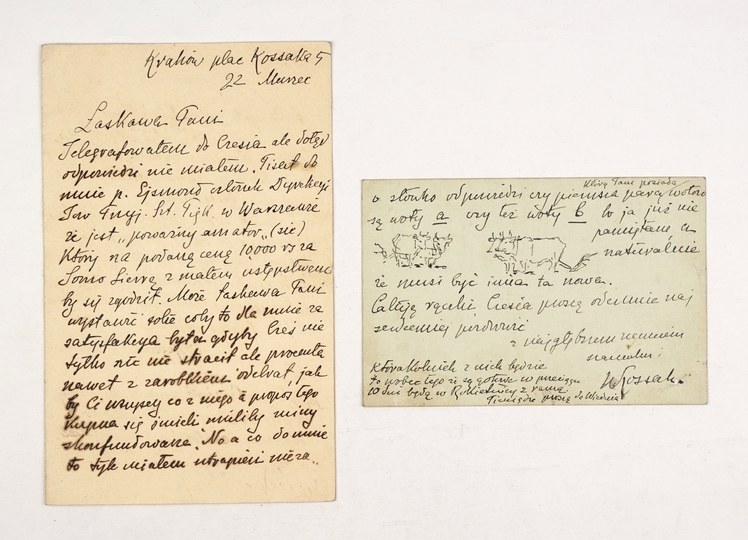 Kraków plac Kossaka 5
22 Marzec
Łaskawa Pani
Telegrafowałem do Czesia ale dotąd
odpowiedzi nie miałem. Pisał do
mnie p. Ejsmond członek Dyrekcyi
Tow w Warszawie
że jest „poważny amator„ (sic)
Który na podaną cenę 10000 rs za
Somo Sierrę z małem ustępstwem
by się zgodził. Może Łaskawa Pani
wystawić sobie coby to dla mnie za
satysfakcya była gdyby Cześ nie
tylko nic nie stracił ale procenta
nawet z zarobkiem odebrał, jak
by Ci wszyscy co z niego à propos tego
Kupna się śmieli mieliby miny
skonfundowane. No a co do mnie
to tyle miałem utrapień nieza..
Którą Pani posiada
o słówko odpowiedzi czy pierwsza para wołów
są woły a czy też woły b bo ja już nie
pamiętam a
naturalnie
że musi być inna ta nowa.
Całuję rączki Czesia proszę odemnie naj
serdeczniej pozdrowić
z najgłębszem
WKossak.
Którakolwiek z nich będzie
to wobec tego że są w przeciągu
10 dni będą w z ramą
Pieniądze proszę do Wiednia